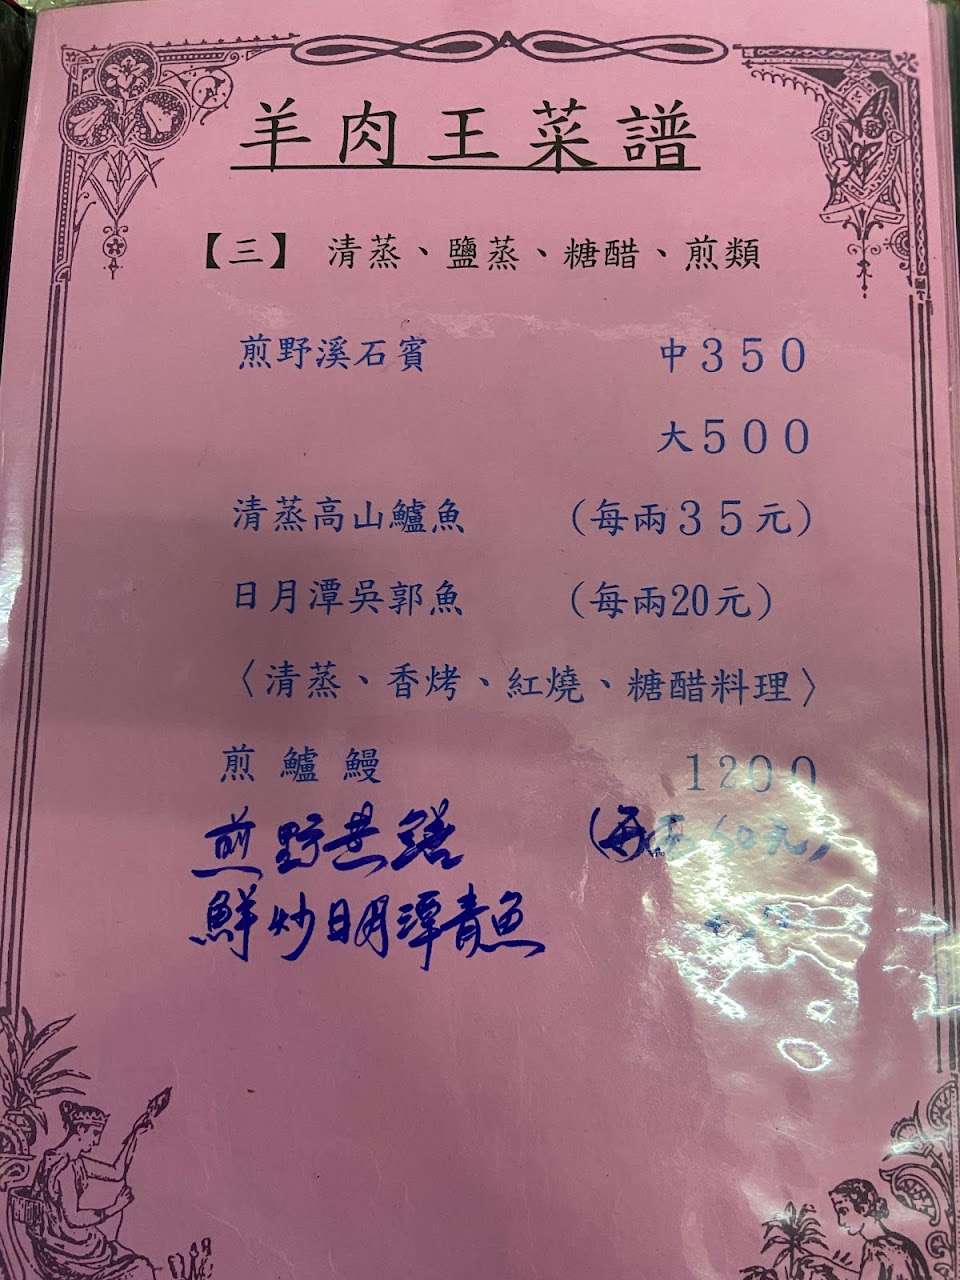 羊肉王菜譜
【三】 清蒸、鹽蒸、糖醋、煎類
煎野溪石賓 中350
大500
清蒸高山鱸魚 (每兩35元)
日月潭吳郭魚 (每兩20元)
〈清蒸、香烤、紅燒、糖醋料理〉
煎鱸鰻 1200
煎野 (每兩60元)
鮮炒日月潭青魚